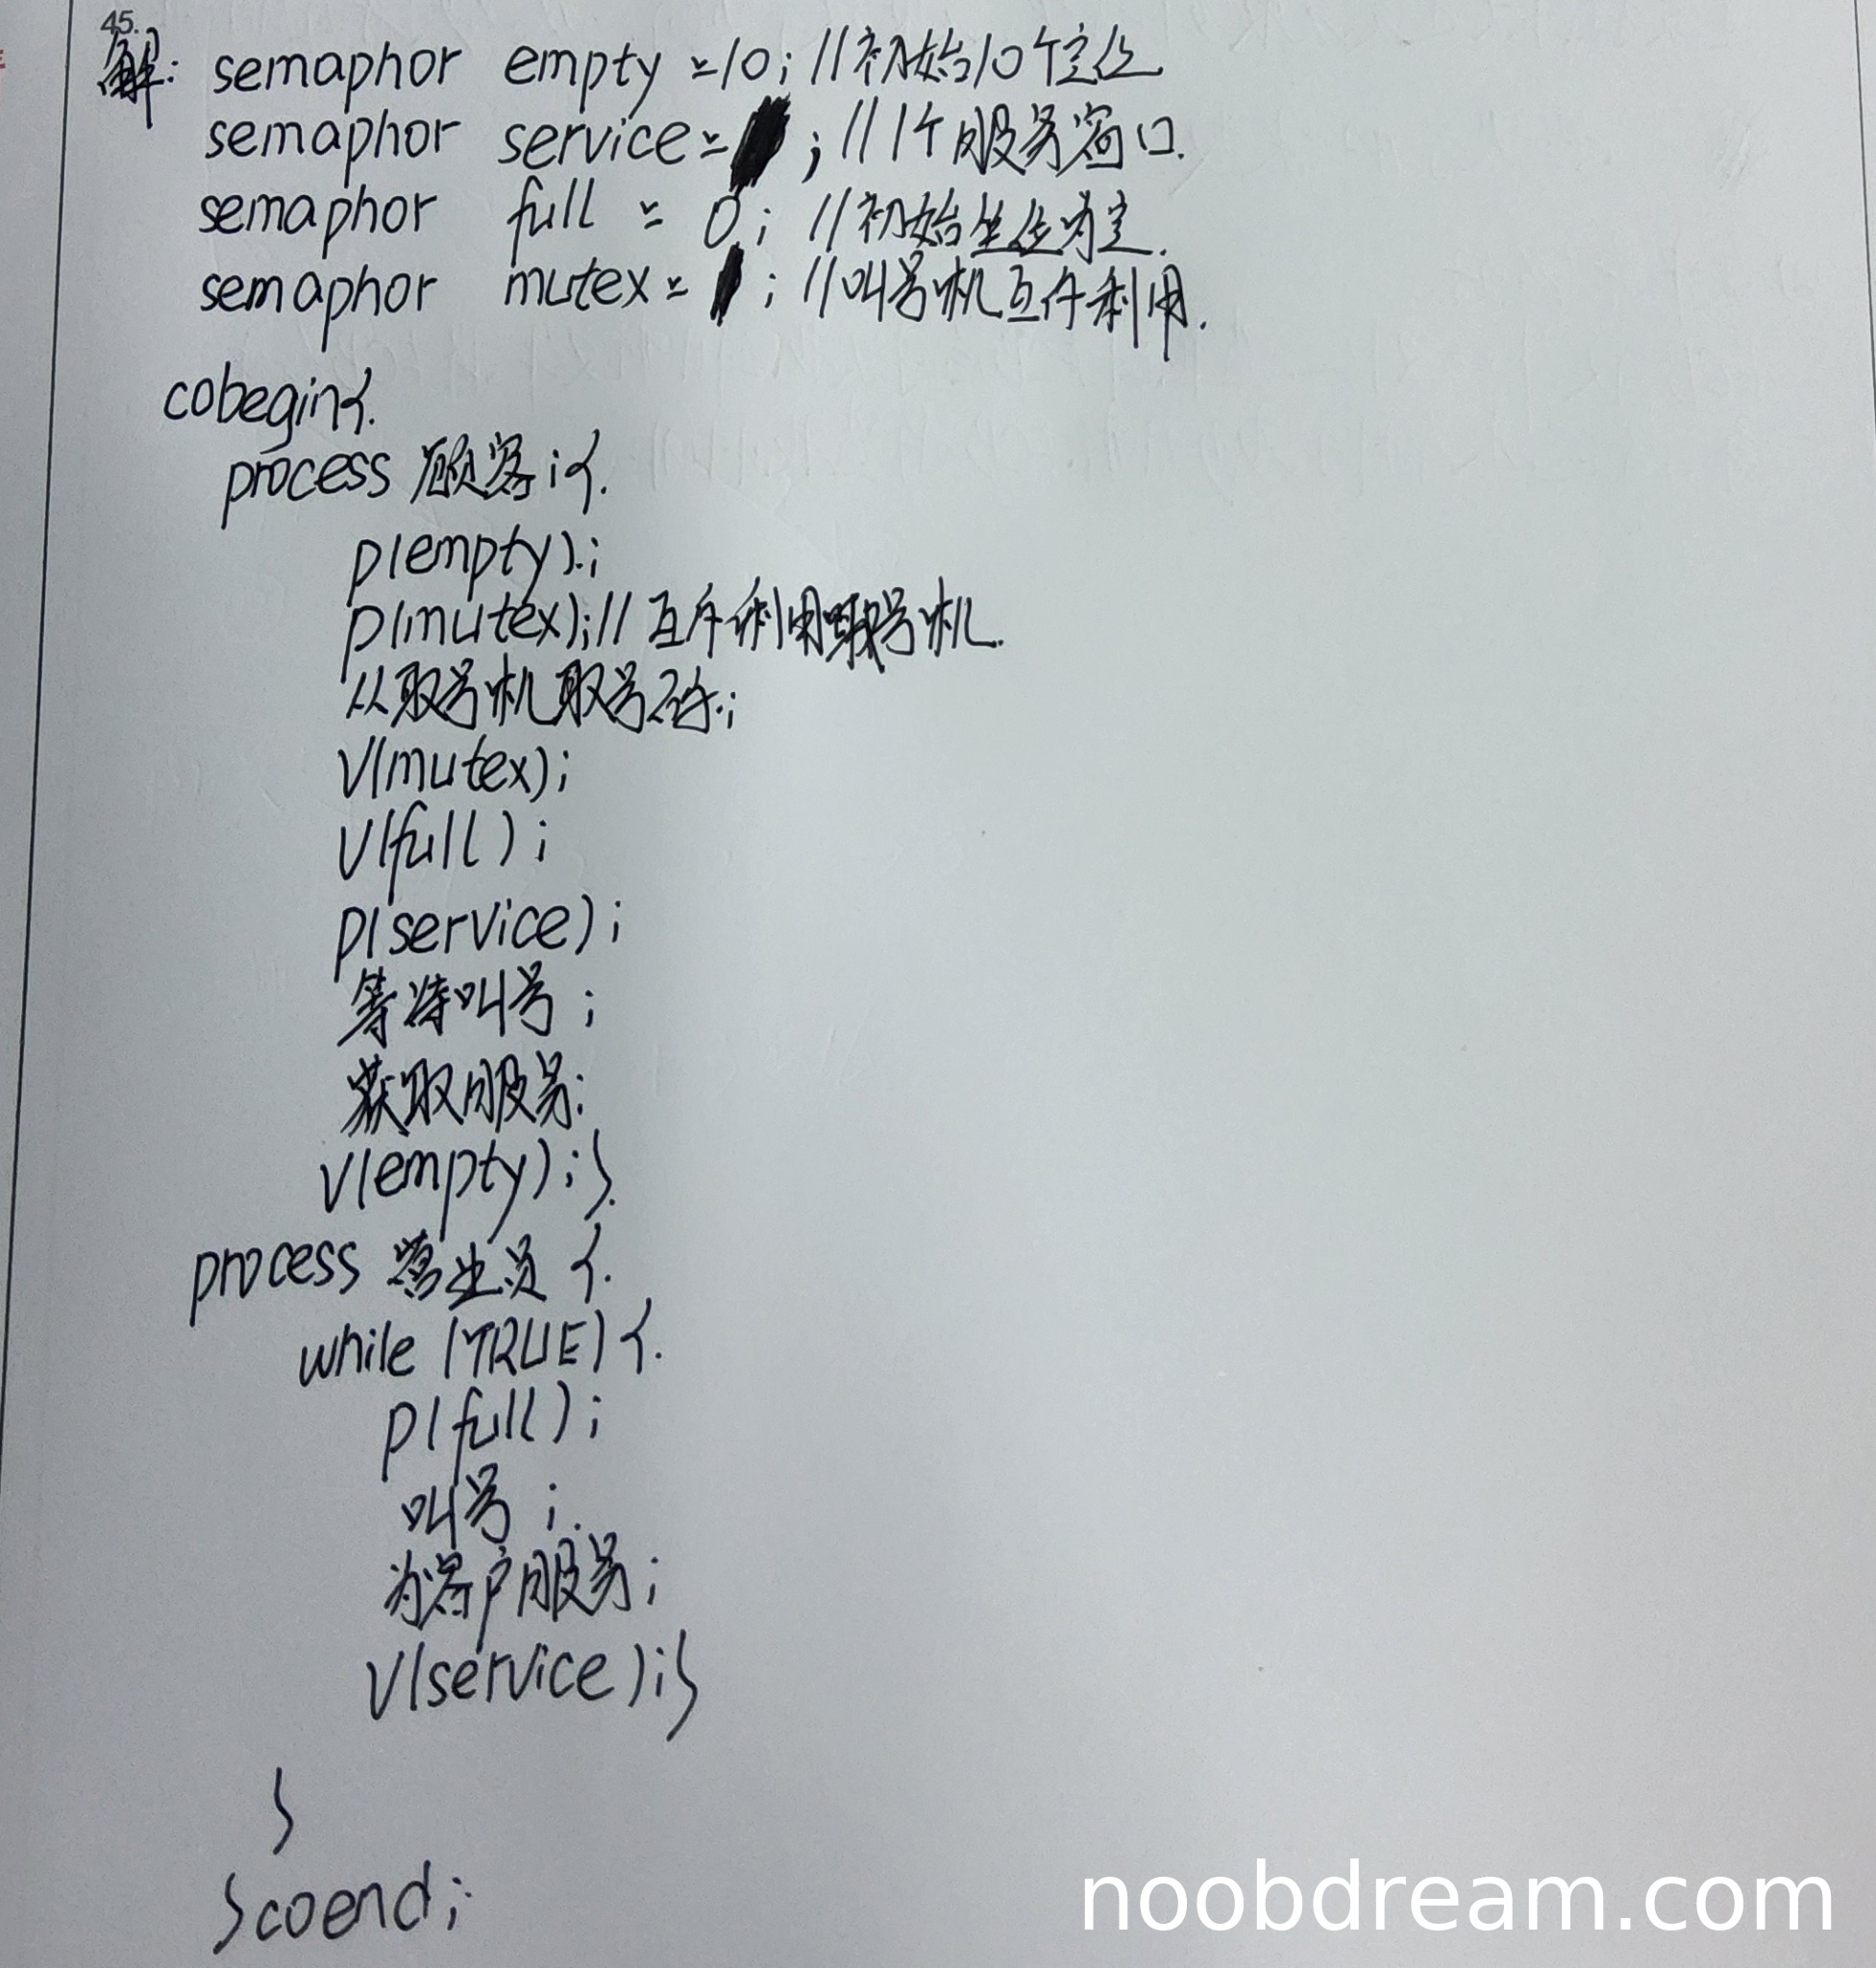 45.
解: semaphor empty =10; //初始10个空位
semaphor service= ; //1个服务窗口.
semaphor full = 0; //初始坐位为空.
semaphor mutex= ; //叫号机互斥利用.
cobegin{.
process 顾客i{.
p(empty).;
p(mutex);// 互斥利用取号机.
从取号机取号码.;
V(mutex);
V(full);
p(service);
等待叫号;
获取服务;
V(empty);}.
process 营业员 {.
while (TRUE) {.
p(full);
叫号;.
为客户服务;
V(service);}
}
}coend;
noobdream.com